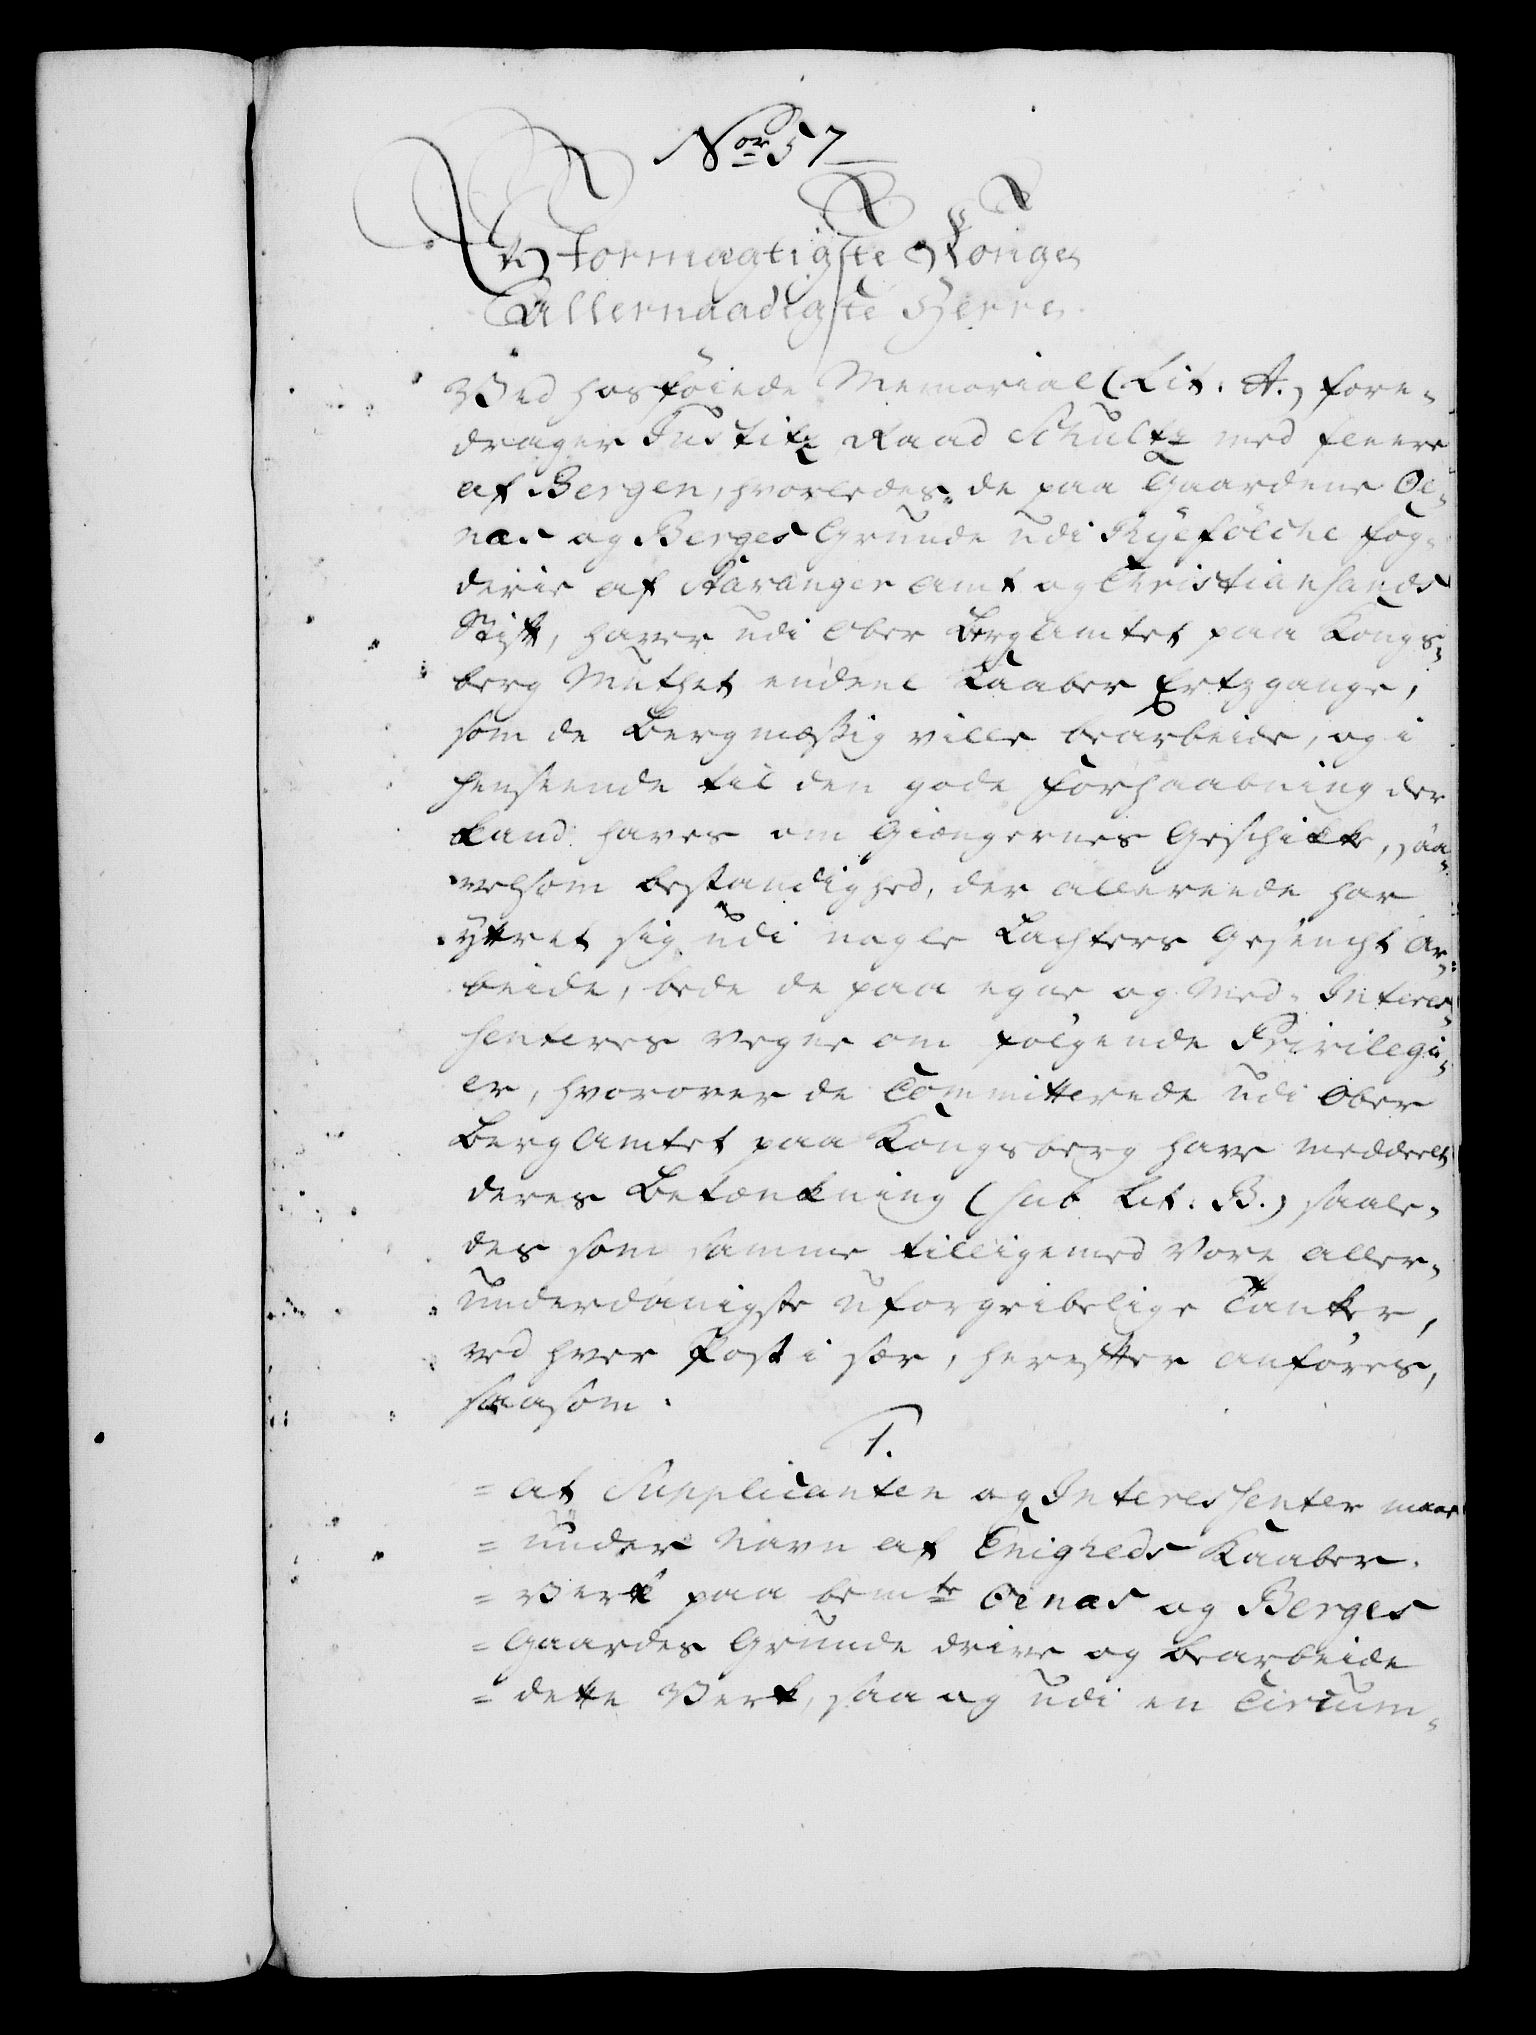 Nor 57
Stormægtigste Konge
Allernaadigste Herre.
Ved hosføiede Memorial (Lit: A.) fore-
drager Justitz Raad Schultz med fleere
af Bergen, hvorledes de paa Gaardene Oe-
næs og Berges Grunde udi Ryefølche Fog-
derie af Stavanger Amt og Christiansands
Stift, haver udi Ober BergAmtet paa Kongs-
berg Muthet eendeel Kaaber Ertzgange,
som de Bergmæssig ville bearbeide, og i
henseende til den gode Forhaabning der
kand haves om Giængernes Geschikke, saa-
velsom bestandighed, der allereede har
yttret sig udi nogle Lachters Gesencht Ar-
beide, bede de paa egne og Med-Interes-
senteres vegne om følgende Privilegi-
er, hvorover de Committerede udi Ober
BergAmtet paa Kongsberg have meddeelt
deres Betænkning (sub Lit: B.) saale-
des som samme tilligemed Vore aller-
underdanigste uforgribelige Tanker,
ved hver Post i sær, herefter anføres,
saasom.
1.
= at Supplicanten og Interessenter maae
= under Navn af Enigheds Kaaber-
= Verk paa bemte Oenæs og Berges
= Gaardes Grunde drive og bearbeide
= dette Verk, saa og udi en Circum-